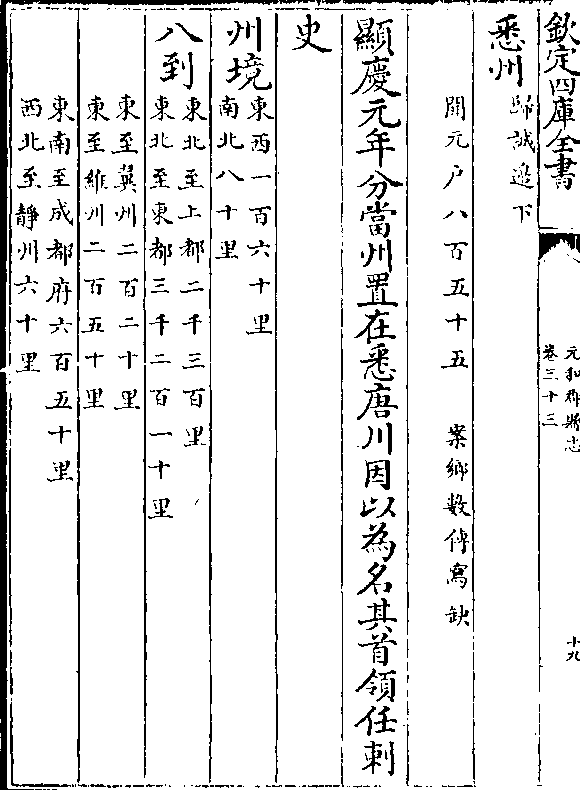 欽定四庫全書
元和郡縣志
卷三十三
十九
悉州
歸誠邉下
開元户八百五十五 案鄉數傳寫缺
顯慶元年分當州置在悉唐川因以為名其首領任刺
史
州境
東西一百六十里
南北八十里
八到
東北至上都二千三百里
東北至東都三千二百一十里
東至翼州二百二十里
東至維州二百五十里
東南至成都府六百五十里
西北至靜州六十里